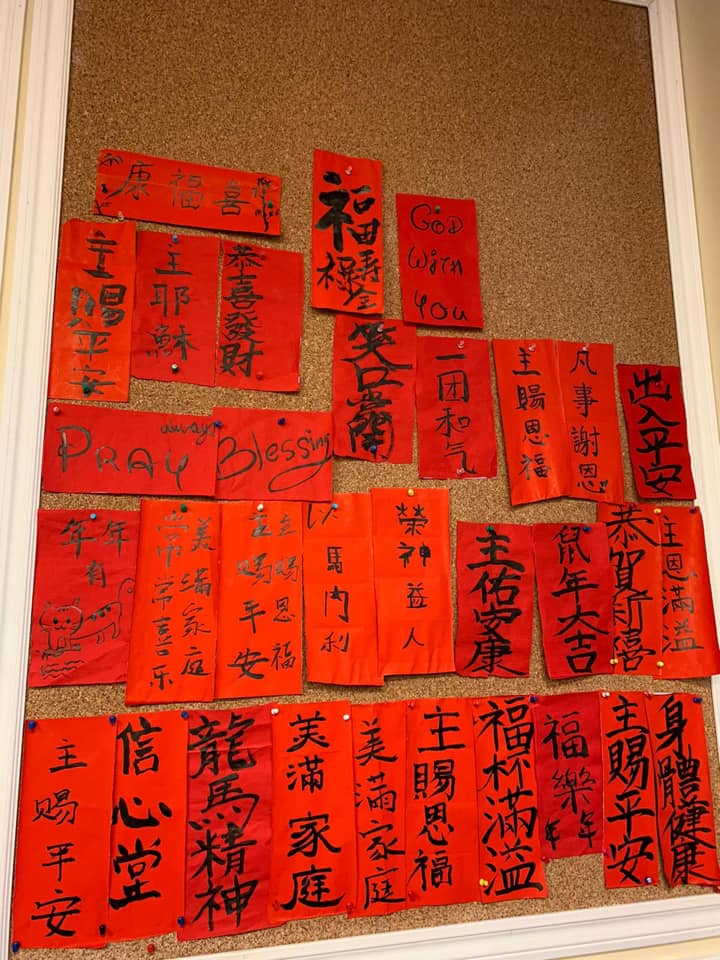 康福喜
福
祿壽全
GOD
With
You
主賜平安
主耶穌
恭喜發財
一团和气
主賜恩福
凡事謝恩
出入平安
PRAY
always
Blessing
年年
有
美滿家庭
常常喜乐
主賜恩福
主賜平安
以馬內利
榮神益人
主佑安康
鼠年大吉
恭賀新喜
主恩滿溢
主賜平安
信心堂
龍馬精神
美滿家庭
美滿家庭
主賜恩福
福杯滿溢
福樂年年
主賜平安
身體健康